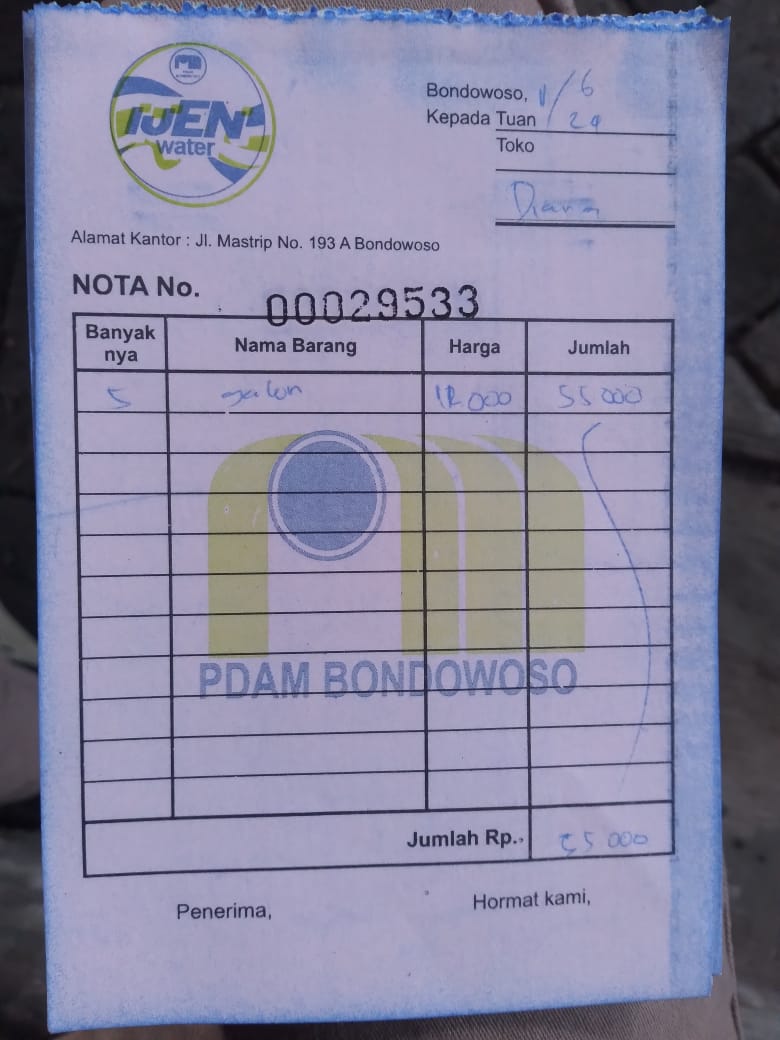 IJEN
water
Bondowoso, 1/6
Kepada Tuan 24
Toko
Alamat Kantor : Jl. Mastrip No. 193 A Bondowoso
NOTA No. 00029533
Banyak nya Nama Barang Harga Jumlah
5 galon 55 000
PDAM BONDOWOSO
Jumlah Rp. 55 000
Penerima, Hormat kami,